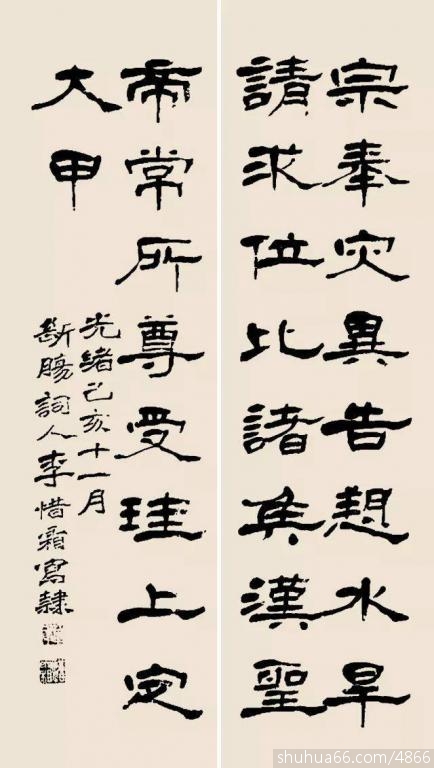 宗奉灾異告愬水旱
請求位比諸矦漢聖
帝常所尊受珪上定
大甲
光緒己亥十一月
斷腸詞人李惜霜寫隸
shuhua66.com/4866